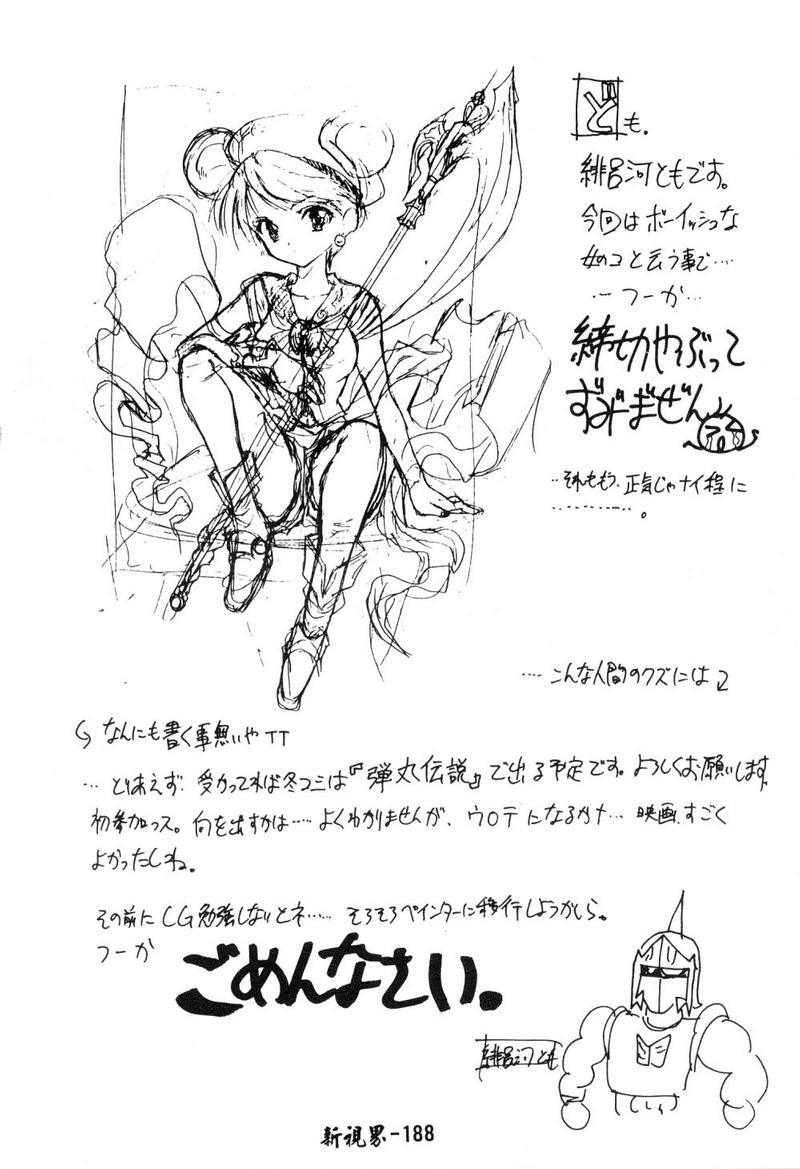 ども。
緋呂河ともです。
今回はボーイッシュな
女のコと云う事で……
…フーか…
締切やぶって
ずみまぜん
…それももう、正気じゃナイ程に
………。
…こんな人間のクズには
なんにも書く事無いやTT
…とりあえず、受かってれば冬コミは『弾丸伝説』で出る予定です。よろしくお願いします。
初参加っス。何を出すかは……よくわかりませんが、ウロテになるかナ…映画すごく
よかったしね。
その前にCG勉強しないとネ……そろそろペインターに移行しようかしら。
フーか
ごめんなさい。
緋呂河とも
新視界-188